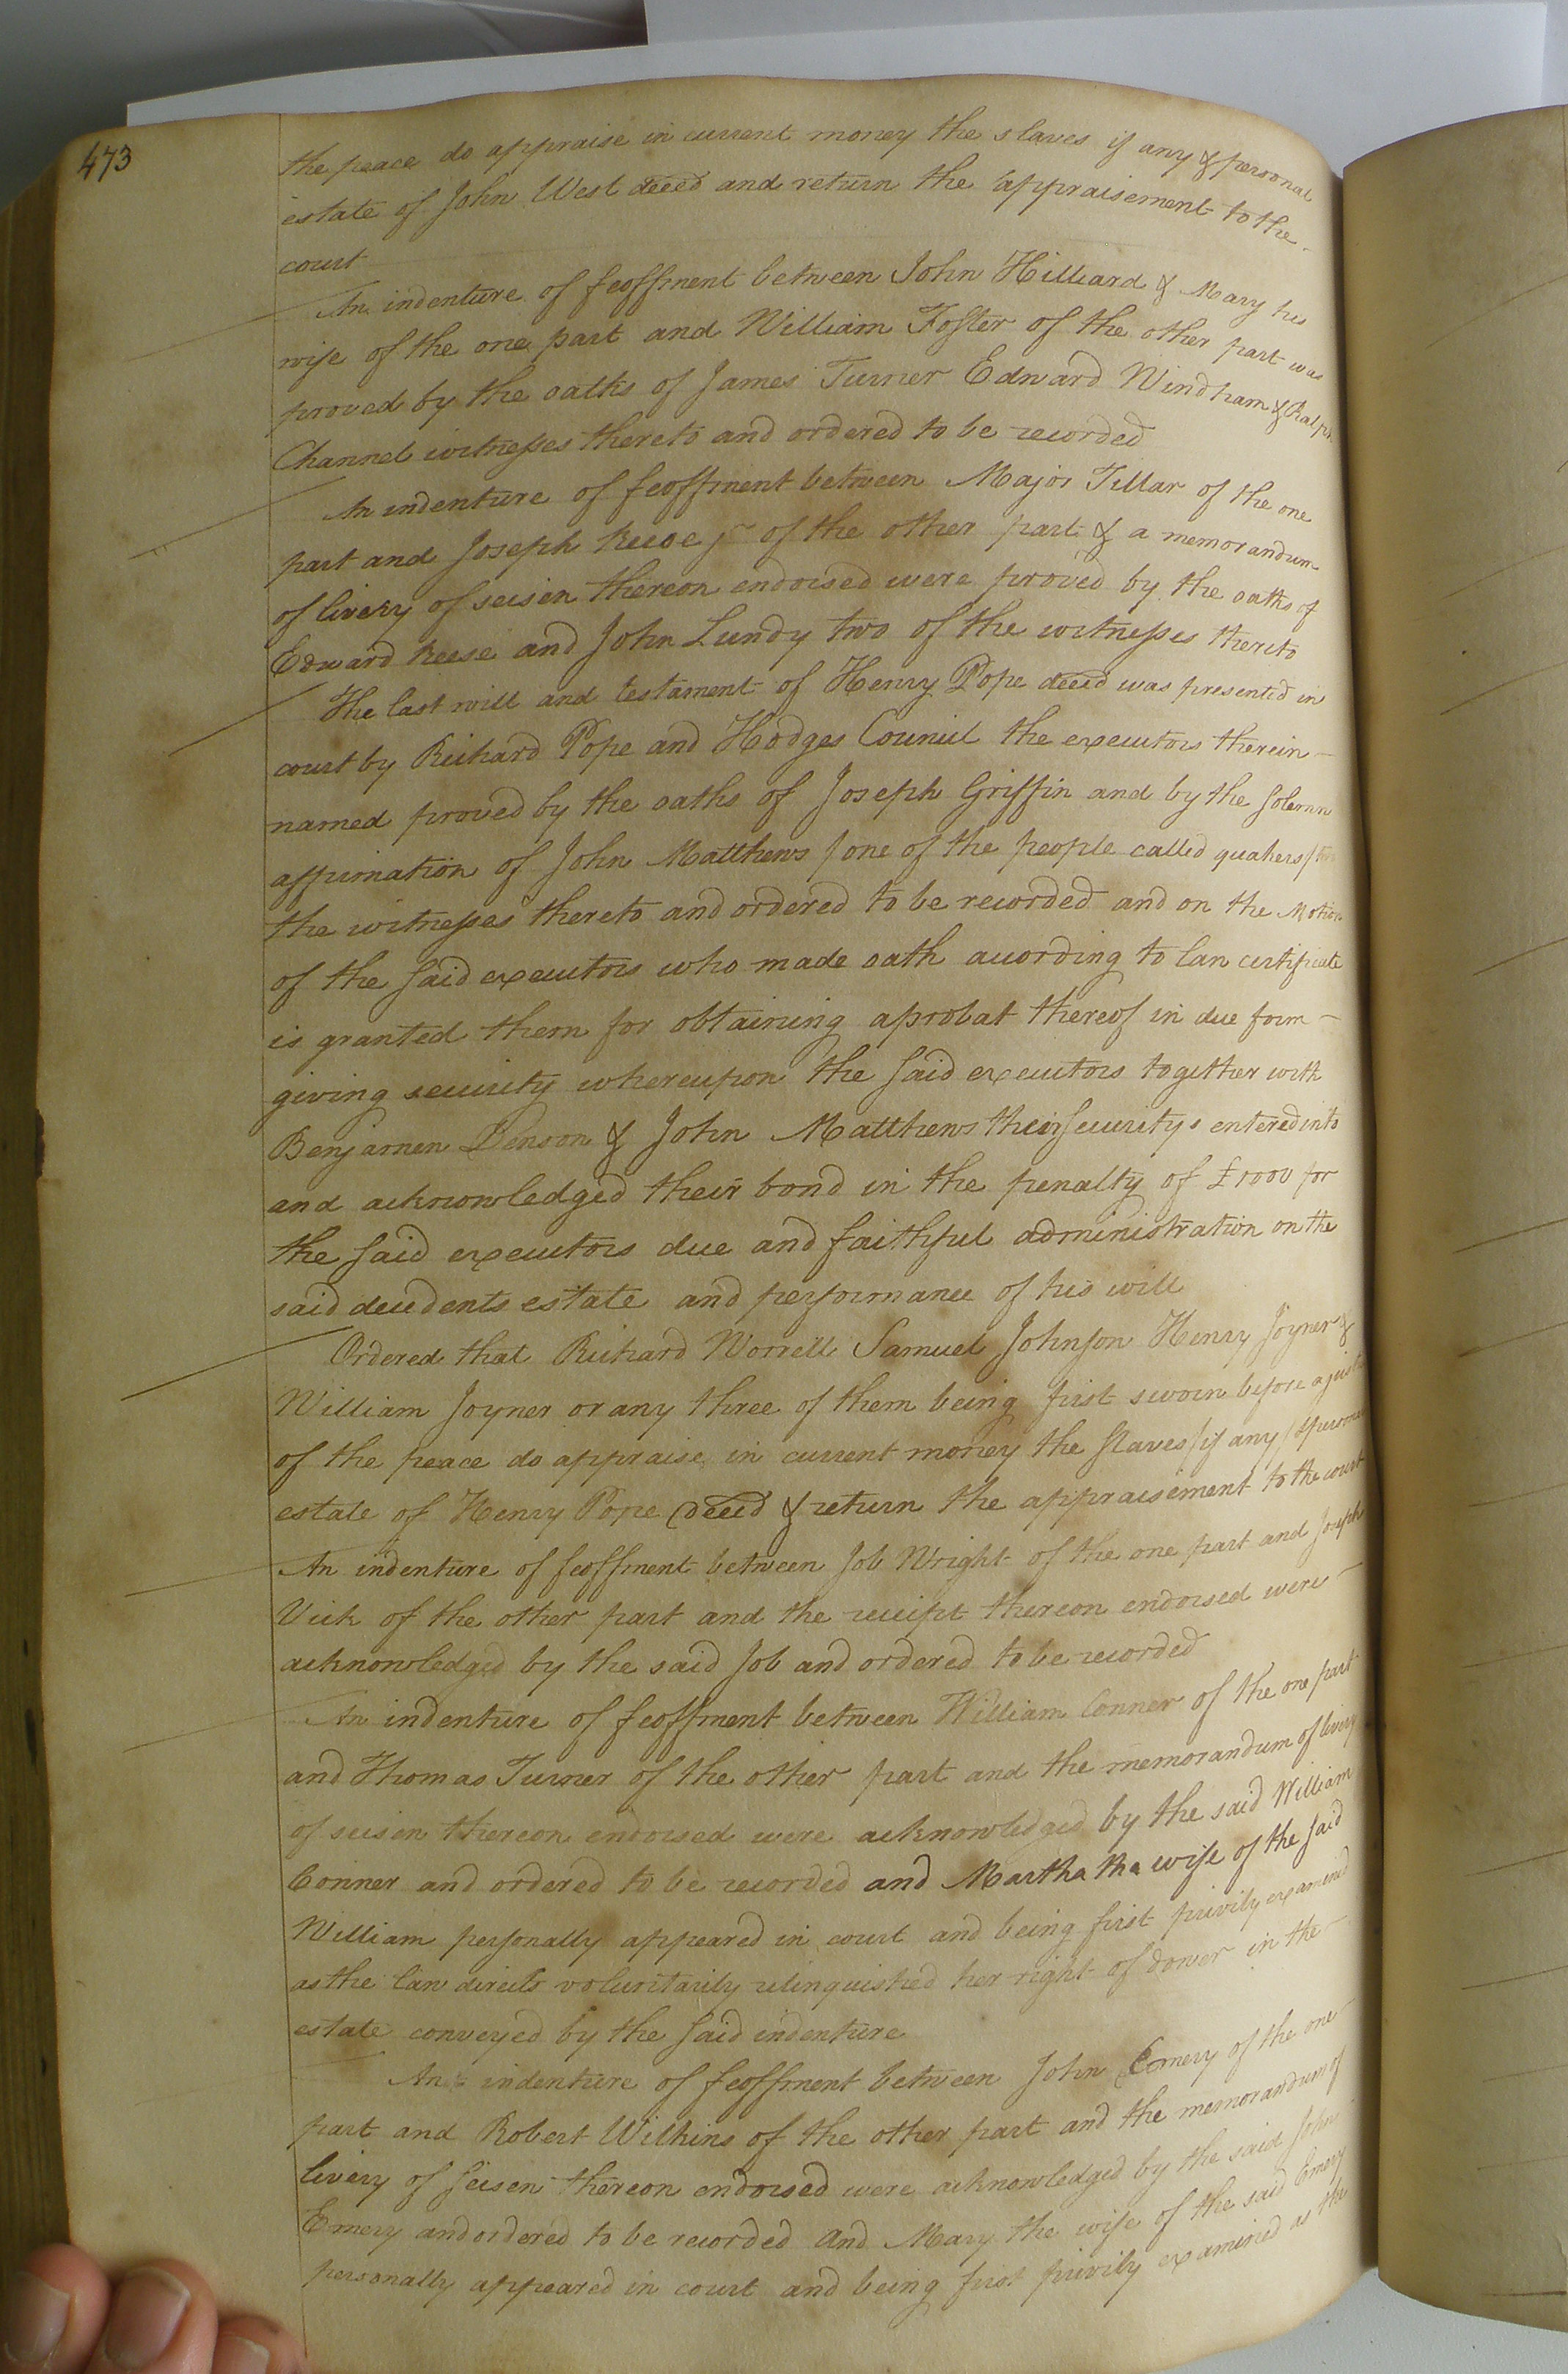 473
the peace do appraise in current money the slaves if any & personal
estate of John West deced and return the appraisement to the
court
An indenture of feoffment between John Hilliard & Mary his
wife of the one part and William Foster of the other part was
proved by the oaths of James Turner Edward Windham & Ralph
Channel witnesses thereto and ordered to be recorded
An indenture of feoffment between Major Tillar of the one
part and Joseph of the other part & a memorandum
of livery of seisen thereon endorsed were proved by the oaths of
Edward Reese and John Lundy two of the witnesses thereto
The last will and testament of Henry Pope deced was presented in
court by Richard Pope and Hodges Council the executors therein
named proved by the oaths of Joseph Griffin and by the solemn
affirmation of John Matthews / one of the people called quakers /
the witnesses thereto and ordered to be recorded and on the Motion
of the said executors who made oath according to law certificate
is granted them for obtaining a probat thereof in due form
giving security whereupon the said executors together with
Benjamen Denson & John Matthews their securitys entered into
and acknowledged their bond in the penalty of £1000 for
the said executors due and faithful administration on the
said decedents estate and performance of his will
Ordered that Richard Worrell Samuel Johnson Henry Joyner &
William Joyner or any three of them being first sworn before a justice
of the peace do appraise in current money the slaves / if any / & personal
estate of Henry Pope deced & return the appraisement to the court
An indenture of feoffment between Job Wright of the one part and Joseph
Vick of the other part and the receipt thereon endorsed were
acknowledged by the said Job and ordered to be recorded
An indenture of feoffment between William Conner of the one part
and Thomas Turner of the other part and the memorandum of livery
of seisen thereon endorsed were acknowledged by the said William
Conner and ordered to be recorded and Martha the wife of the said
William personally appeared in court and being first privily examined
as the law directs voluntarily relinquished her right of dower in the
estate conveyed by the said indenture
An indenture of feoffment between John Emery of the one
part and Robert Wilkins of the other part and the memorandum of
livery of seisen thereon endorsed were acknowledged by the said John
Emery and ordered to be recorded and Mary the wife of the said Emery
personally appeared in court and being first privily examined as the